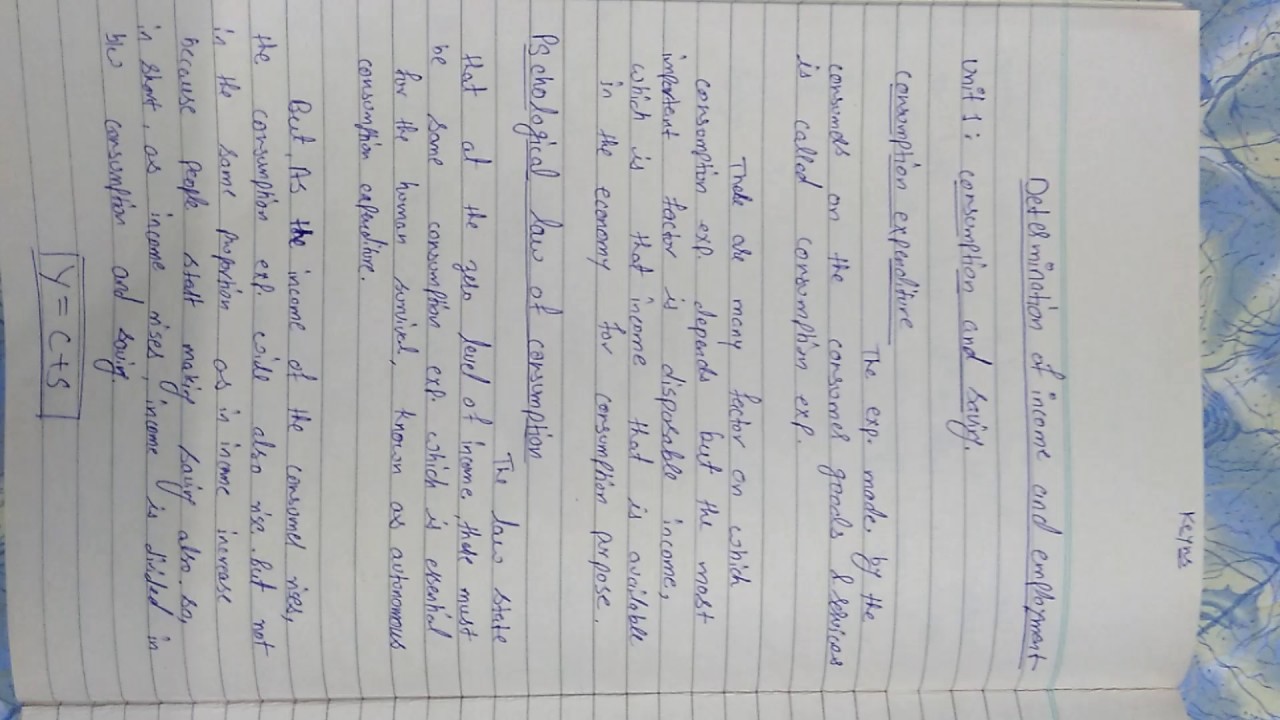 Keyns
Determination of income and employment
Unit 1: consumption and saving.
consumption expenditure
The exp. made by the
consumers on the consumer goods & services
is called consumption exp.
There are many factor on which
consumption exp. depends but the most
important factor is disposable income,
which is that income that is available
in the economy for consumption purpose.
Pschological law of consumption
The law state
that at the zero level of income, there must
be some consumption exp. which is essential
for the human survival, known as autonomous
consumption expenditure.
But, As the income of the consumer rises,
the consumption exp. will also rise but not
in the same proportion as in income increase
because people start making saving also. so,
in short, as income rises, income is divided in
b/w consumption and saving.
Y = C + S